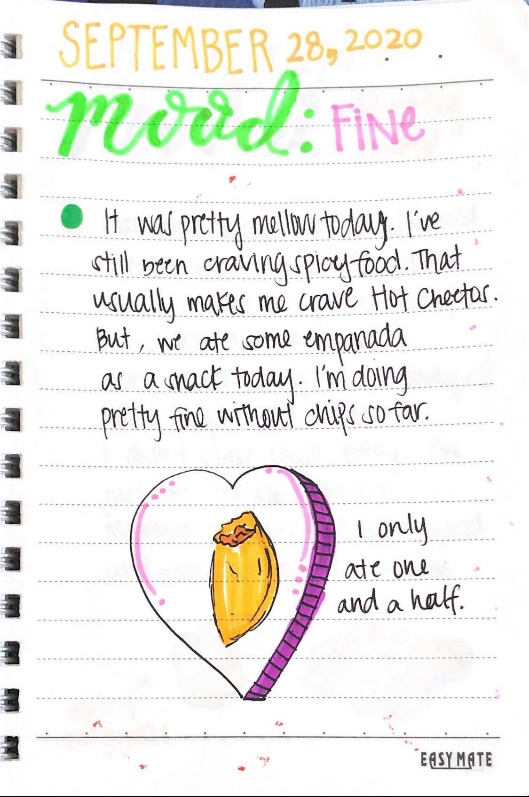 SEPTEMBER 28, 2020
mood: FINE
It was pretty mellow today. I've
still been craving spicy food. That
usually makes me crave Hot Cheetos.
But, we ate some empanada
as a snack today. I'm doing
pretty fine without chips so far.
I only
ate one
and a half.
EASY MATE